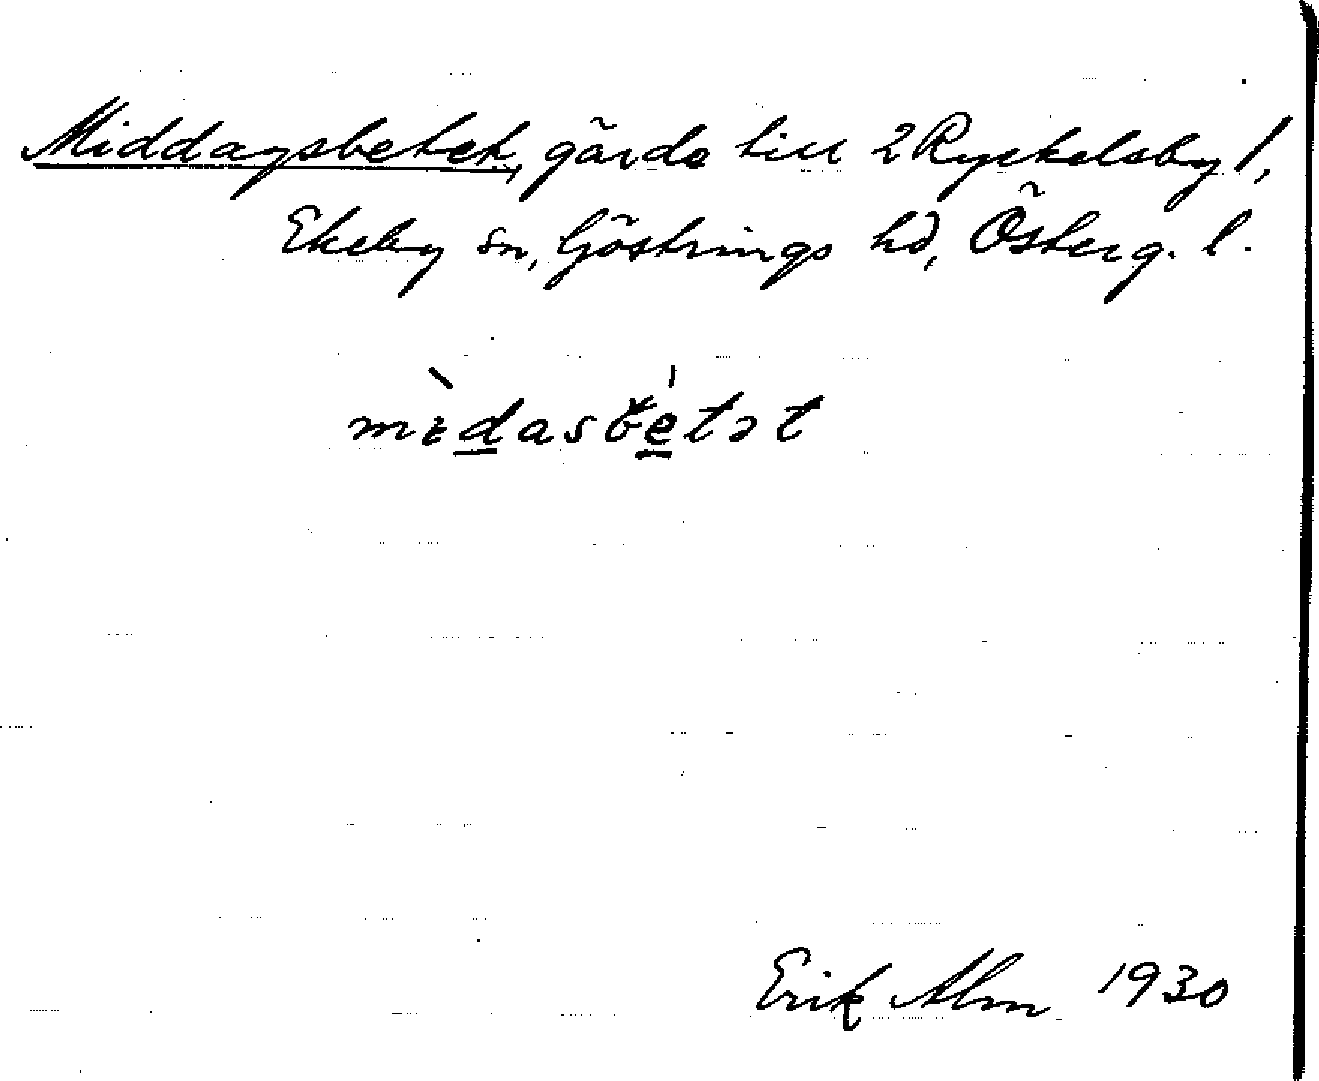 Middagsbetet, gärde till 2 Ryckelsby 1,
Ekeby sn, Göstrings hd, Österg. l.
mìdasbetət
Erik Alm 1930